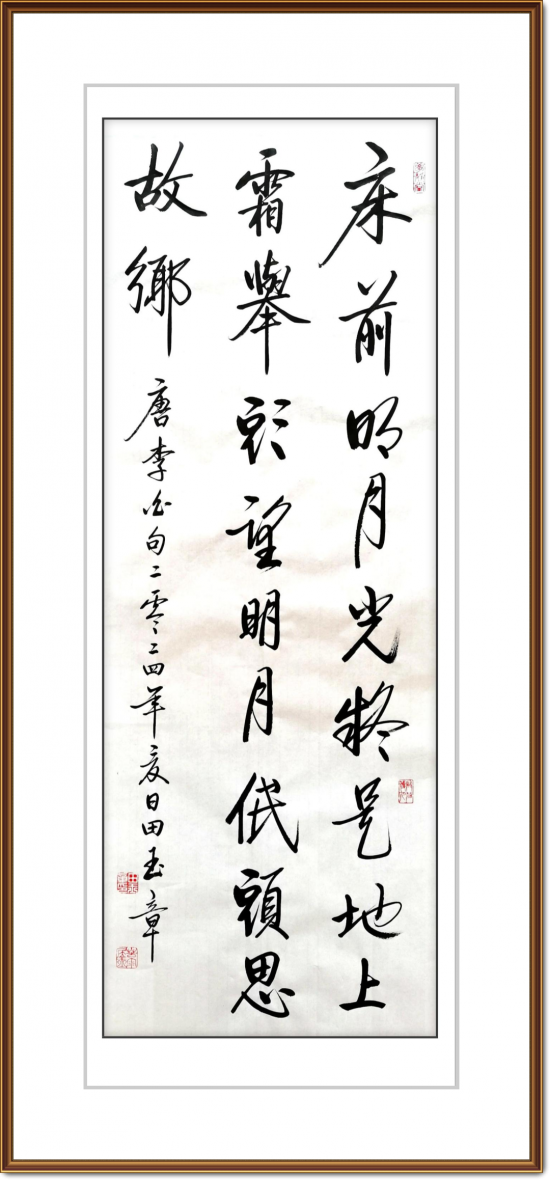 床前明月光疑是地上
霜舉頭望明月低頭思
故鄉
唐李白句二零二四年夏日田玉章